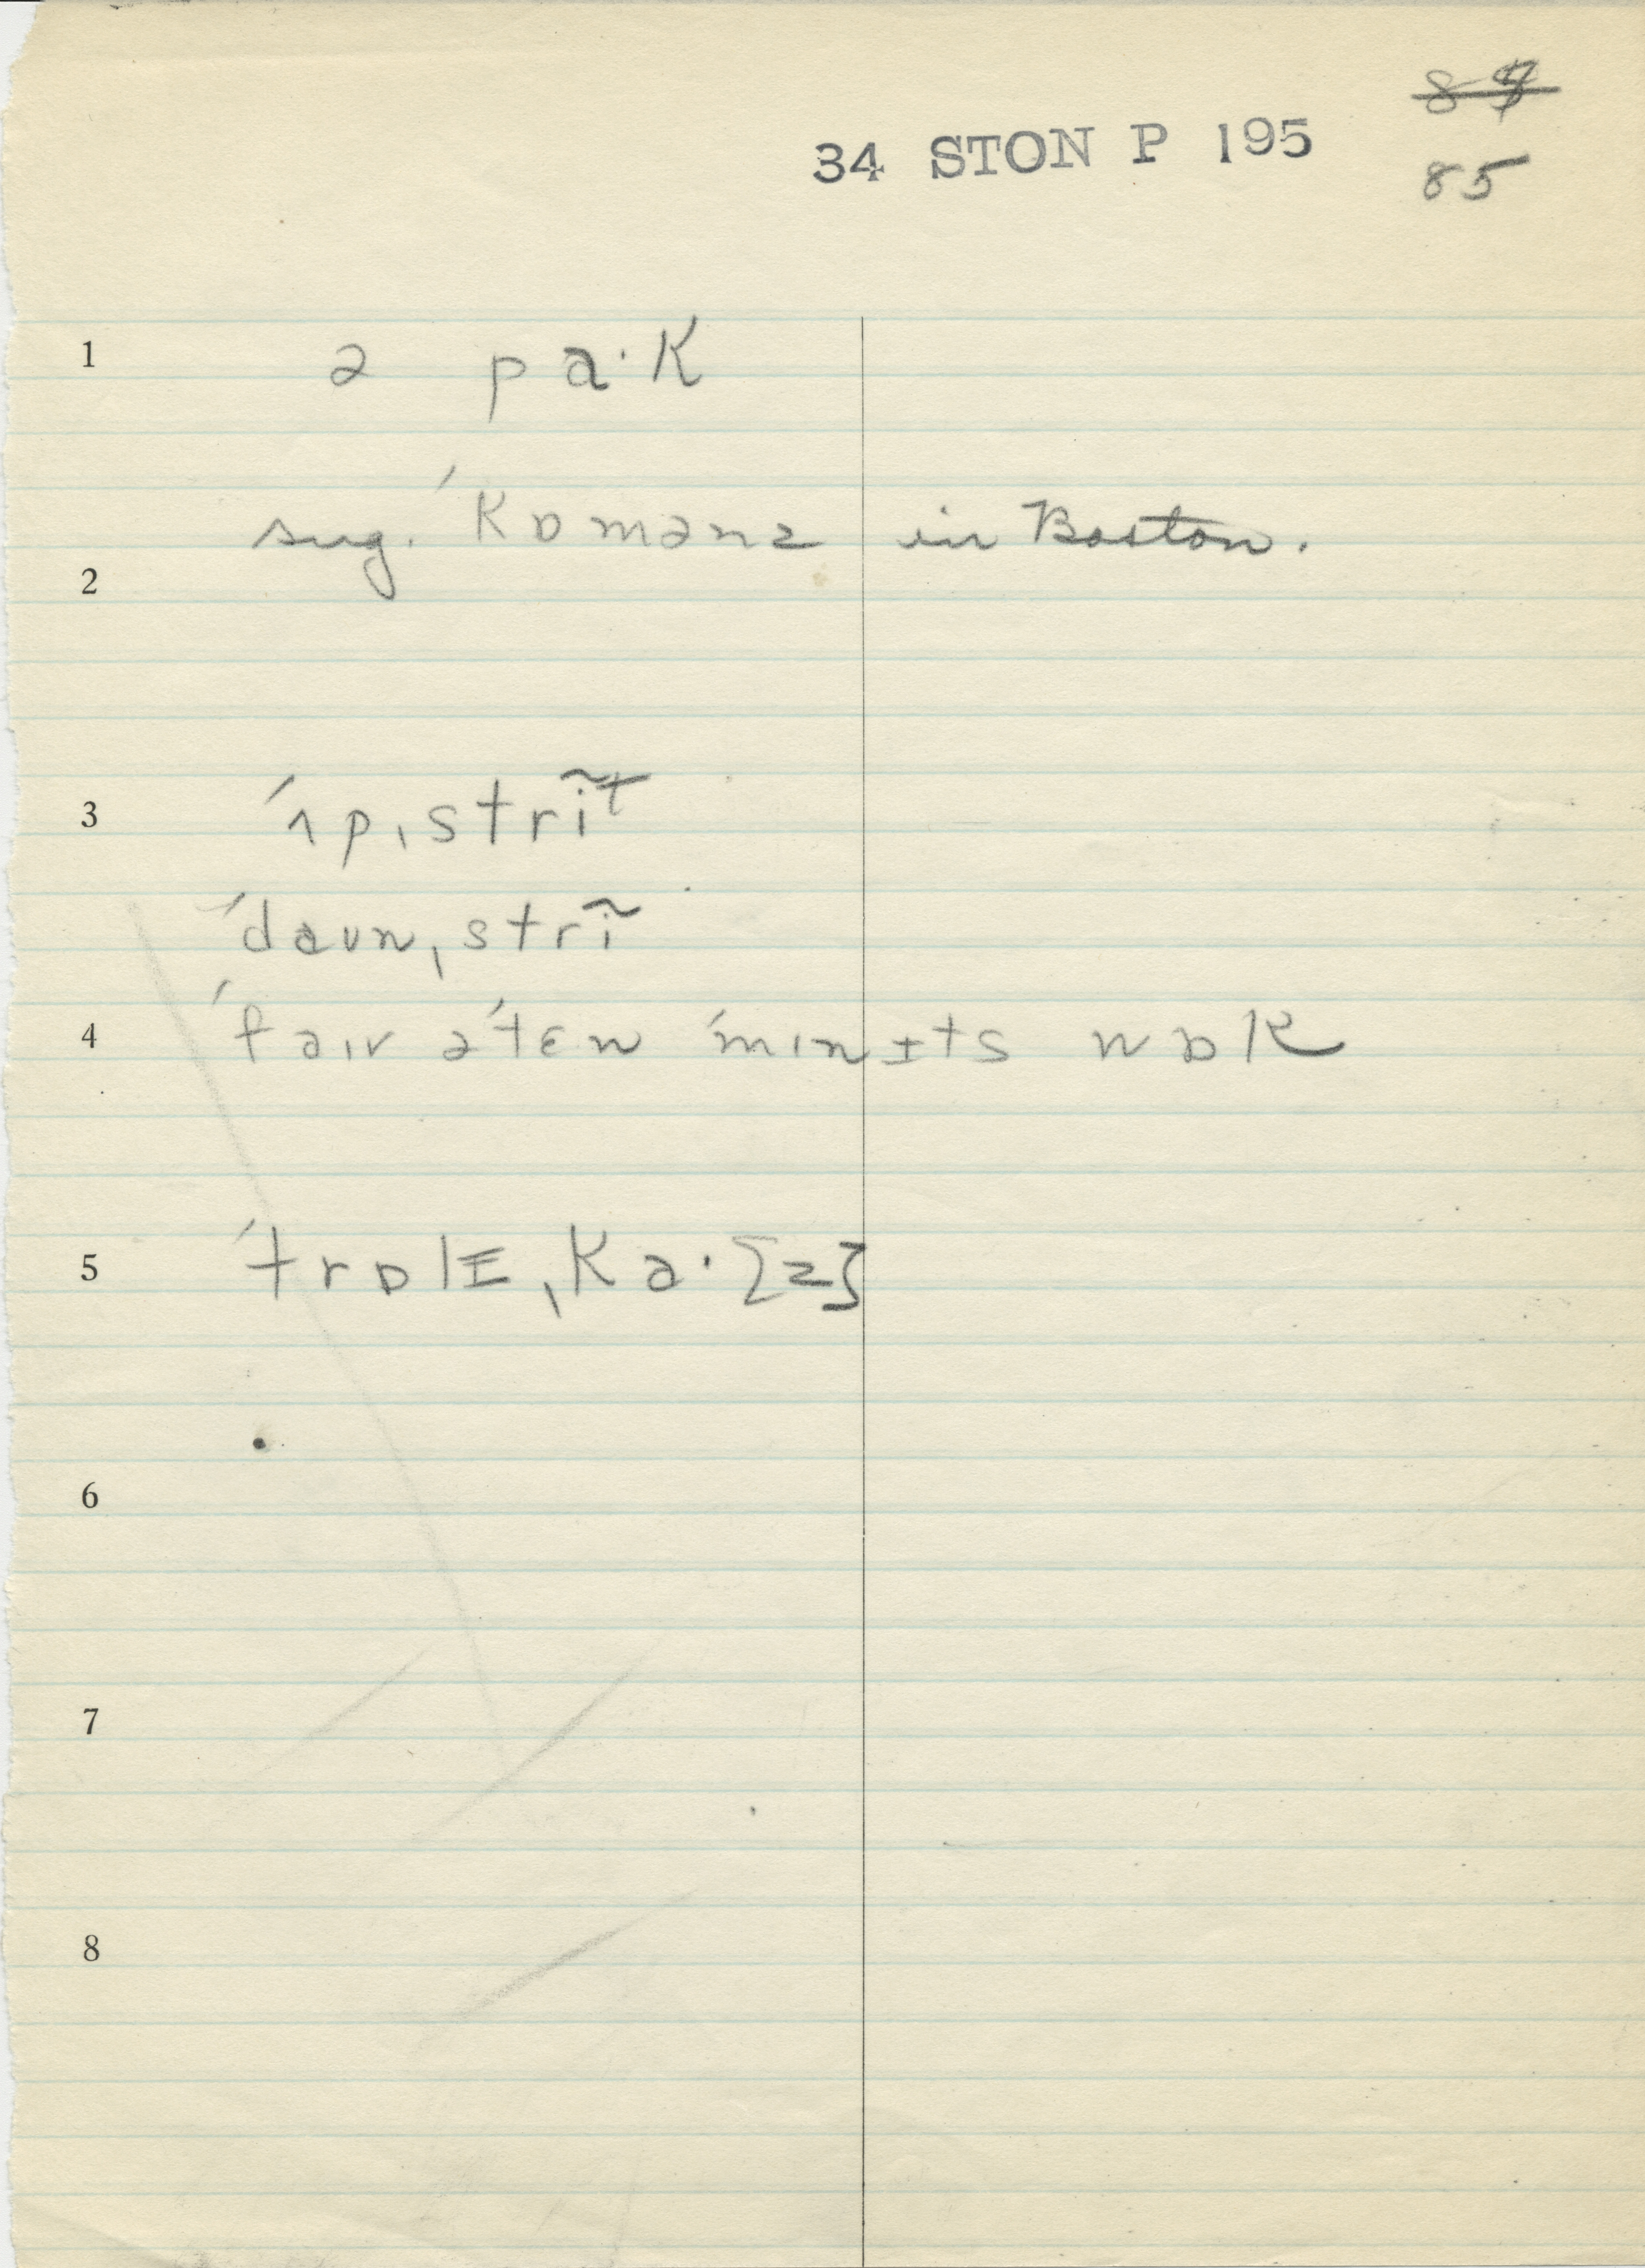 84
34 STON P 195
85
1 ə pa·k
sug. ˈkɒmənz in Boston.
2
3 ˈʌpˌstrĩt
ˈdaʊnˌstrĩ
4 ˈfaɪv ə ˈtɛn ˈmɪnɪts wɒk
5 ˈtrɒlɪˌka·[z]
6
7
8